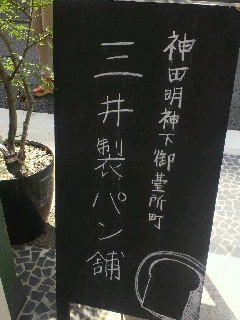 神田明神下御臺所町
三井製パン舗